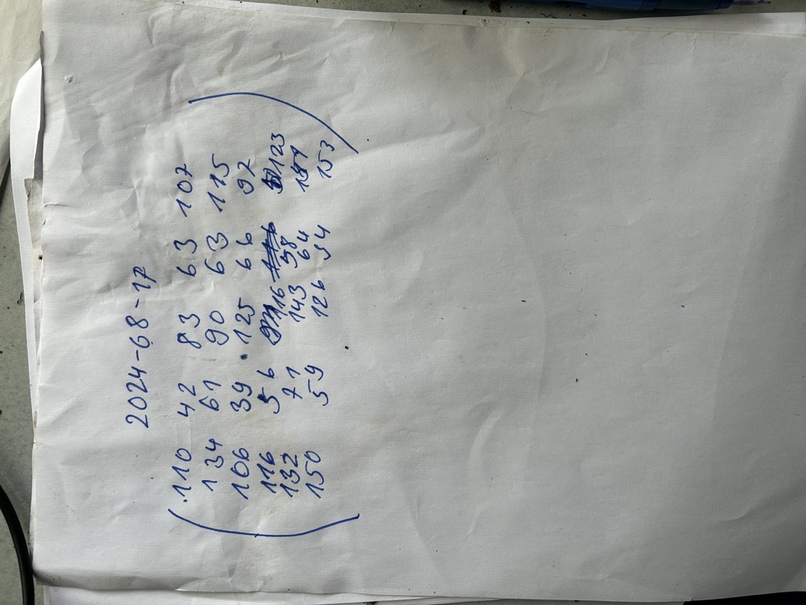 2024-08-17
110 42 83 63 107
134 61 90 63 115
106 39 125 66 97
116 56 116 58 123
132 71 143 64
150 59 126 94 153